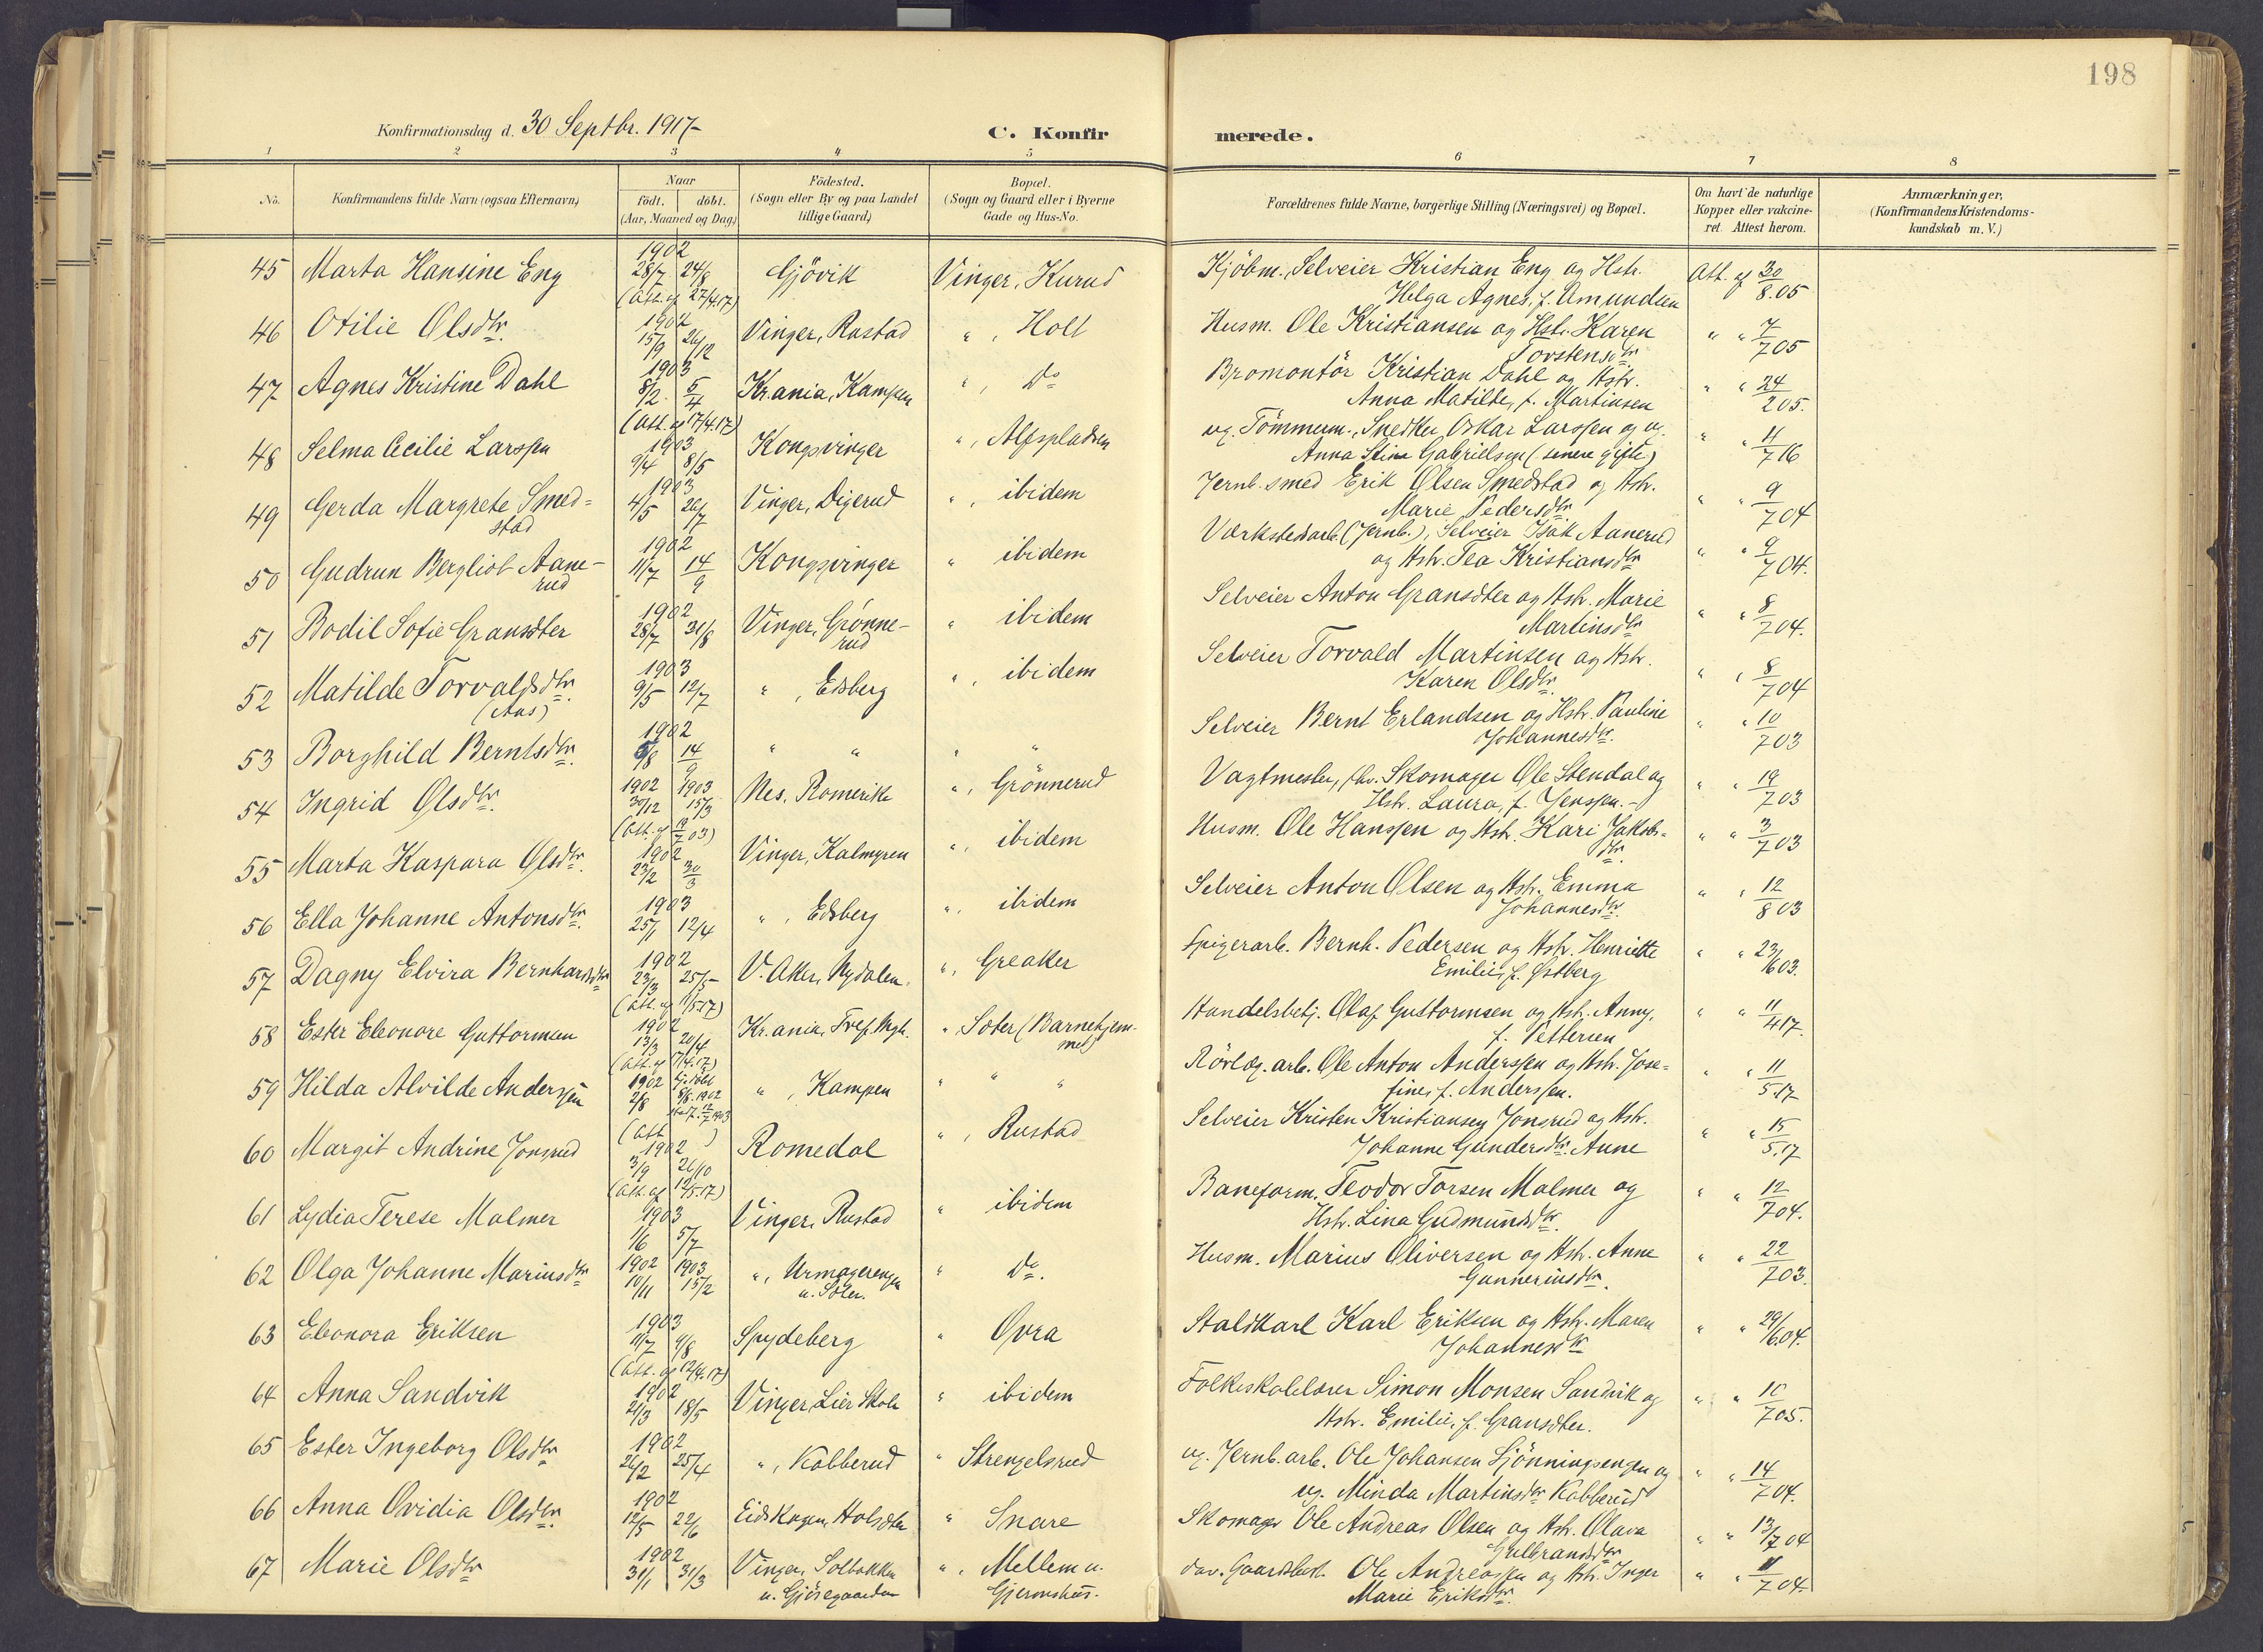 198
Konfirmationsdag d. 30 Septbr. 1917-
C. Konfir
merede.
1 2 3 4 5 6 7 8
No.
Konfirmandens fulde Navn (ogsaa Efternavn)
Naar
födt. döbt.
(Aar, Maaned og Dag)
Födested.
(Sogn eller By og paa Landet
tillige Gaard)
Bopæl.
(Sogn og Gaard eller i Byerne
Gade og Hus-No.
Forældrenes fulde Navne, borgerlige Stilling (Næringsvei) og Bopæl.
Om havt de naturlige
Kopper eller vakcine-
ret. Attest herom.
Anmærkninger,
(Konfirmandens Kristendoms-
kundskab m. V.)
45 Marta Hansine Eng 1902 28/7 24/8 Gjövik Vinger, Kurud Kjöbm., Selveier Kristian Eng og Hstr. Att. af 30/8.05
(Att. af 27/4.17) Helga Agnes, f. Amundsen
46 Otilie Olsdtr. 1902 15/9 26/12 Vinger, Rastad " , Holt Husm. Ole Kristiansen og Hstr. Karen " " 7/7 05
Torstensdtr
47 Agnes Kristine Dahl 1903 8/2 5/4 Kr.ania, Kampen " , Do Bromontör Kristian Dahl og Hstr. " " 24/2 05.
(Att. af 17/4.17) Anna Matilde, f. Martinsen
48 Selma Cecilie Larssen 1903 9/4 8/5 Kongsvinger " , Alfspladsen ug. Tömmerm., Snedker Oskar Larssen og ug. " " 11/7 16
Anna Stina Gabrielsen (senere gifte)
49 Gerda Margrete Smed= 1903 4/5 26/7 Vinger, Digerud " , ibidem Jernb.smed Erik Olsen Smedstad og Hstr. " " 9/7 04
stad Marie Pedersdtr
50 Gudrun Bergliot Aane- 1902 11/7 14/9 Kongsvinger " ibidem Værkstedsarb. (Jernb.), Selveier Isak Aanerud " " 9/7 04.
rud og Hstr. Tea Kristiansdtr
51 Bodil Sofie Gransäter 1902 28/7 31/8 Vinger, Grönne- " ibidem Selveier Anton Gransäter og Hstr. Marie " " 8/7 04.
rud Martinsdtr
52 Matilde Torvaldsdtr. 1903 9/5 12/7 " , Edsberg " , ibidem Selveier Torvald Martinsen og Hstr. " " 8/7 04
(Aas) Karen Olsdtr.
53 Borghild Berntsdtr. 1902 5/8 14/9 " " " " Selveier Bernt Erlandsen og Hstr. Pauline " " 10/7 03
Johannesdtr.
54 Ingrid Olsdtr. 1902 1903 30/12 15/3 Nes, Romerike " , Grönnerud Vagtmester, fhv. Skomager Ole Stendal og " " 19/7 03
(Att. af 19/7 03) Hstr. Laura, f. Jenssen.-
55 Marta Kaspara Olsdtr. 1902 23/2 30/3 Vinger, Kalmyren " , ibidem Husm. Ole Hanssen og Hstr. Kari Jakobs= " " 3/7 03
dtr.
56 Ella Johanne Antonsdtr. 1903 25/1 12/4 " , Edsberg " , ibidem Selveier Anton Olsen og Hstr. Emma " " 12/8 03
Johannesdtr.
57 Dagny Elvira Bernhardsdtr 1902 23/3 25/5 V. Aker, Nydalen " , Greaker Spigerarb. Bernh. Pedersen og Hstr. Henriette " " 23/1603.
(Att. af 11/5.17) Emilie, f. Östberg
58 Ester Eleonore Guttormsen 1902 13/3 20/4 Kr.ania, Tref. Mgh. " Soter (Barnehjem- Handelsbetj. Olaf Guttormsen og Hstr. Anny, " " 11/4 17.
(Att. af 17/4.17) met) f. Pettersen
59 Hilda Alvilde Anderssen 1902 2/8 8/8.1902 " , Kampen " " " Rörlæg. arb. Ole Anton Anderssen og Hstr. Jose= " " 11/5.17
(Att ) fine, f. Anderssen.
60 Margit Andrine Jonsrud 1902 3/9 26/10 Romedal " , Rustad Selveier Kristen Kristiansen Jonsrud og Hstr. " " 15/5.17
(Att. af 12/5.17) Johanne Gundersdtr. Aune
61 Lydia Terese Malmer 1903 1/6 5/7 Vinger, Rustad " ibidem Baneform. Teodor Torsen Malmer og " " 12/7 04.
Hstr. Lina Gudmundsdtr.
62 Olga Johanne Mariusdtr 1902 1903 10/11 15/2 " , Urmagerengen " Do. Husm. Marius Oliversen og Hstr. Anne " " 22/7 03.
u. Soler. Gunneriusdtr.
63 Eleonora Eriksen 1903 11/7 9/8 Spydeberg " Övra Staldkarl Karl Eriksen og Hstr. Maren " " 29/6.04.
(Att. af 12/4.17) Johannesdtr
64 Anna Sandvik 1902 21/3 18/5 Vinger, Lier Skole " ibidem Folkeskolelærer Simon Monsen Sandvik og " " 10/7 05.
Hstr. Emilie, f. Gransäter.
65 Ester Ingeborg Olsdtr 1902 26/2 25/4 " , Kabberud " Strengelsrud ug. Jernb.arb. Ole Johansen Sjönningsengen og " " 14/7 04.
ug. Minda Martinsdtr Kabberud
66 Anna Ovidia Olsdtr. 1902 12/5 22/6 Eidskogen, Holsäter " Snare Skomager Ole Andreas Olsen og Hstr. Olava " " 13/7 04
Gulbrandsdtr
67 Marie Olsdtr 1902 31/1 31/3 Vinger, Solbakken " , Mellem u. dav. Gaardsbest. Ole Andreassen og Hstr. Inger " " 11/7 04
u. Gjösegaarden Gjermshus. Marie Eriksdtr.